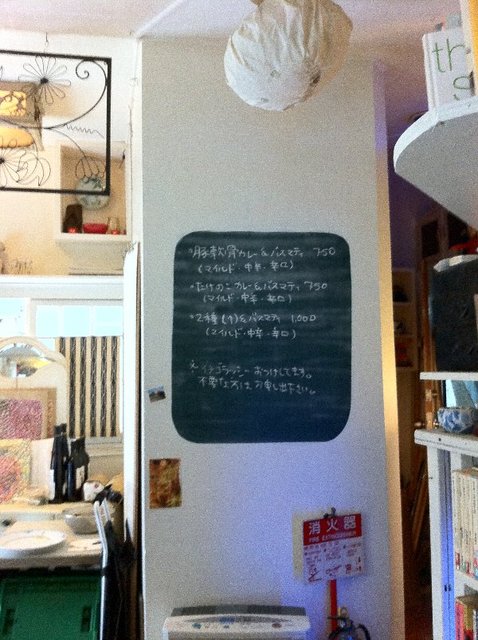 ・豚軟骨カレー&バスマティ 750
(マイルド・中辛・辛口)
・たけのこカレー&バスマティ 750
(マイルド・中辛・辛口)
・2種(付)&バスマティ 1,000
(マイルド・中辛・辛口)
イチゴラッシーおつけしてます。
不要な方はお申し出下さい。
th
s
消火器
FIRE EXTINGUISHER